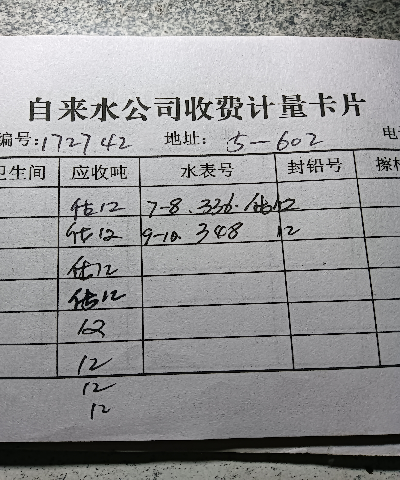 自来水公司收费计量卡片
编号:172742 地址: 5-602 电
卫生间 应收吨 水表号 封铅号 擦
估12 7-8.336.估12
估12 9-10.348 12
估12
估12
12
12
12
12